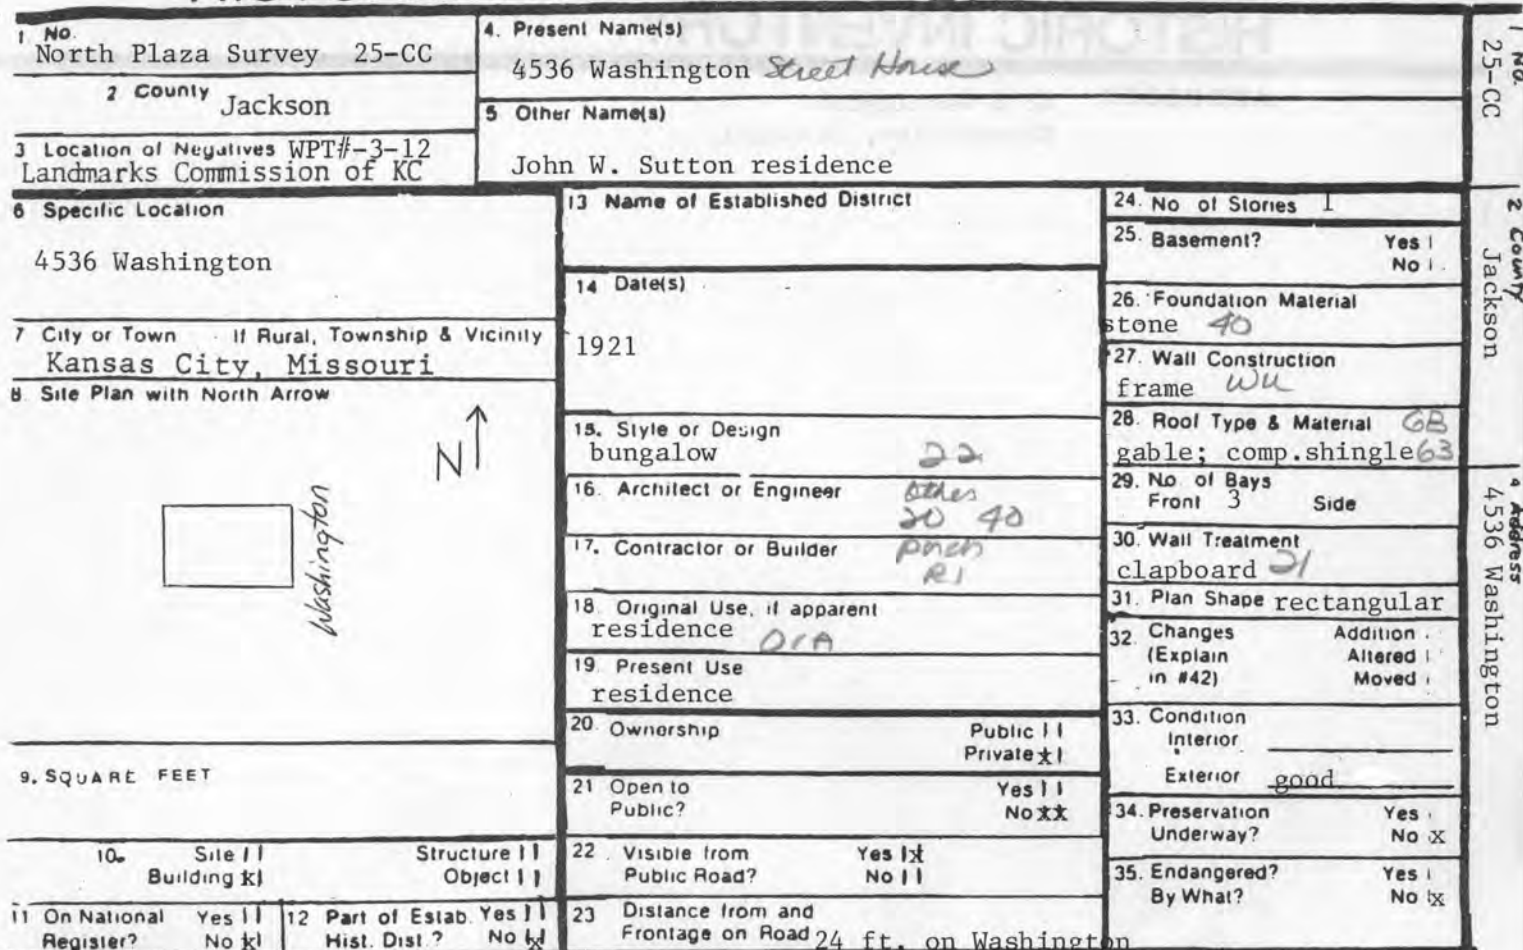 1. No.
North Plaza Survey 25-CC
2 County Jackson
3 Location of Negatives WPT#-3-12
Landmarks Commission of KC
4. Present Name(s)
4536 Washington Street House
5 Other Name(s)
John W. Sutton residence
6 Specific Location
4536 Washington
7 City or Town If Rural, Township & Vicinity
Kansas City, Missouri
8 Site Plan with North Arrow
N
Washington
9. SQUARE FEET
10. Site Structure
Building x Object
11 On National Yes
Register? No x
12 Part of Estab. Yes
Hist. Dist.? No x
13 Name of Established District
14 Date(s)
1921
15. Style or Design
bungalow 22
16. Architect or Engineer other
20 40
17. Contractor or Builder porch
R1
18. Original Use, if apparent
residence 01A
19. Present Use
residence
20. Ownership Public
Private x
21 Open to Yes
Public? No xx
22. Visible from Yes x
Public Road? No
23 Distance from and
Frontage on Road 24 ft. on Washington
24. No of Stories 1
25. Basement? Yes
No
26. Foundation Material
stone 40
27. Wall Construction
frame WU
28. Roof Type & Material GB
gable; comp.shingle 63
29. No. of Bays
Front 3 Side
30. Wall Treatment
clapboard 21
31. Plan Shape rectangular
32. Changes Addition
(Explain Altered
in #42) Moved
33. Condition
Interior
Exterior good
34. Preservation Yes
Underway? No x
35. Endangered? Yes
By What? No x
1 No.
25-CC
2 County
Jackson
4 Address
4536 Washington